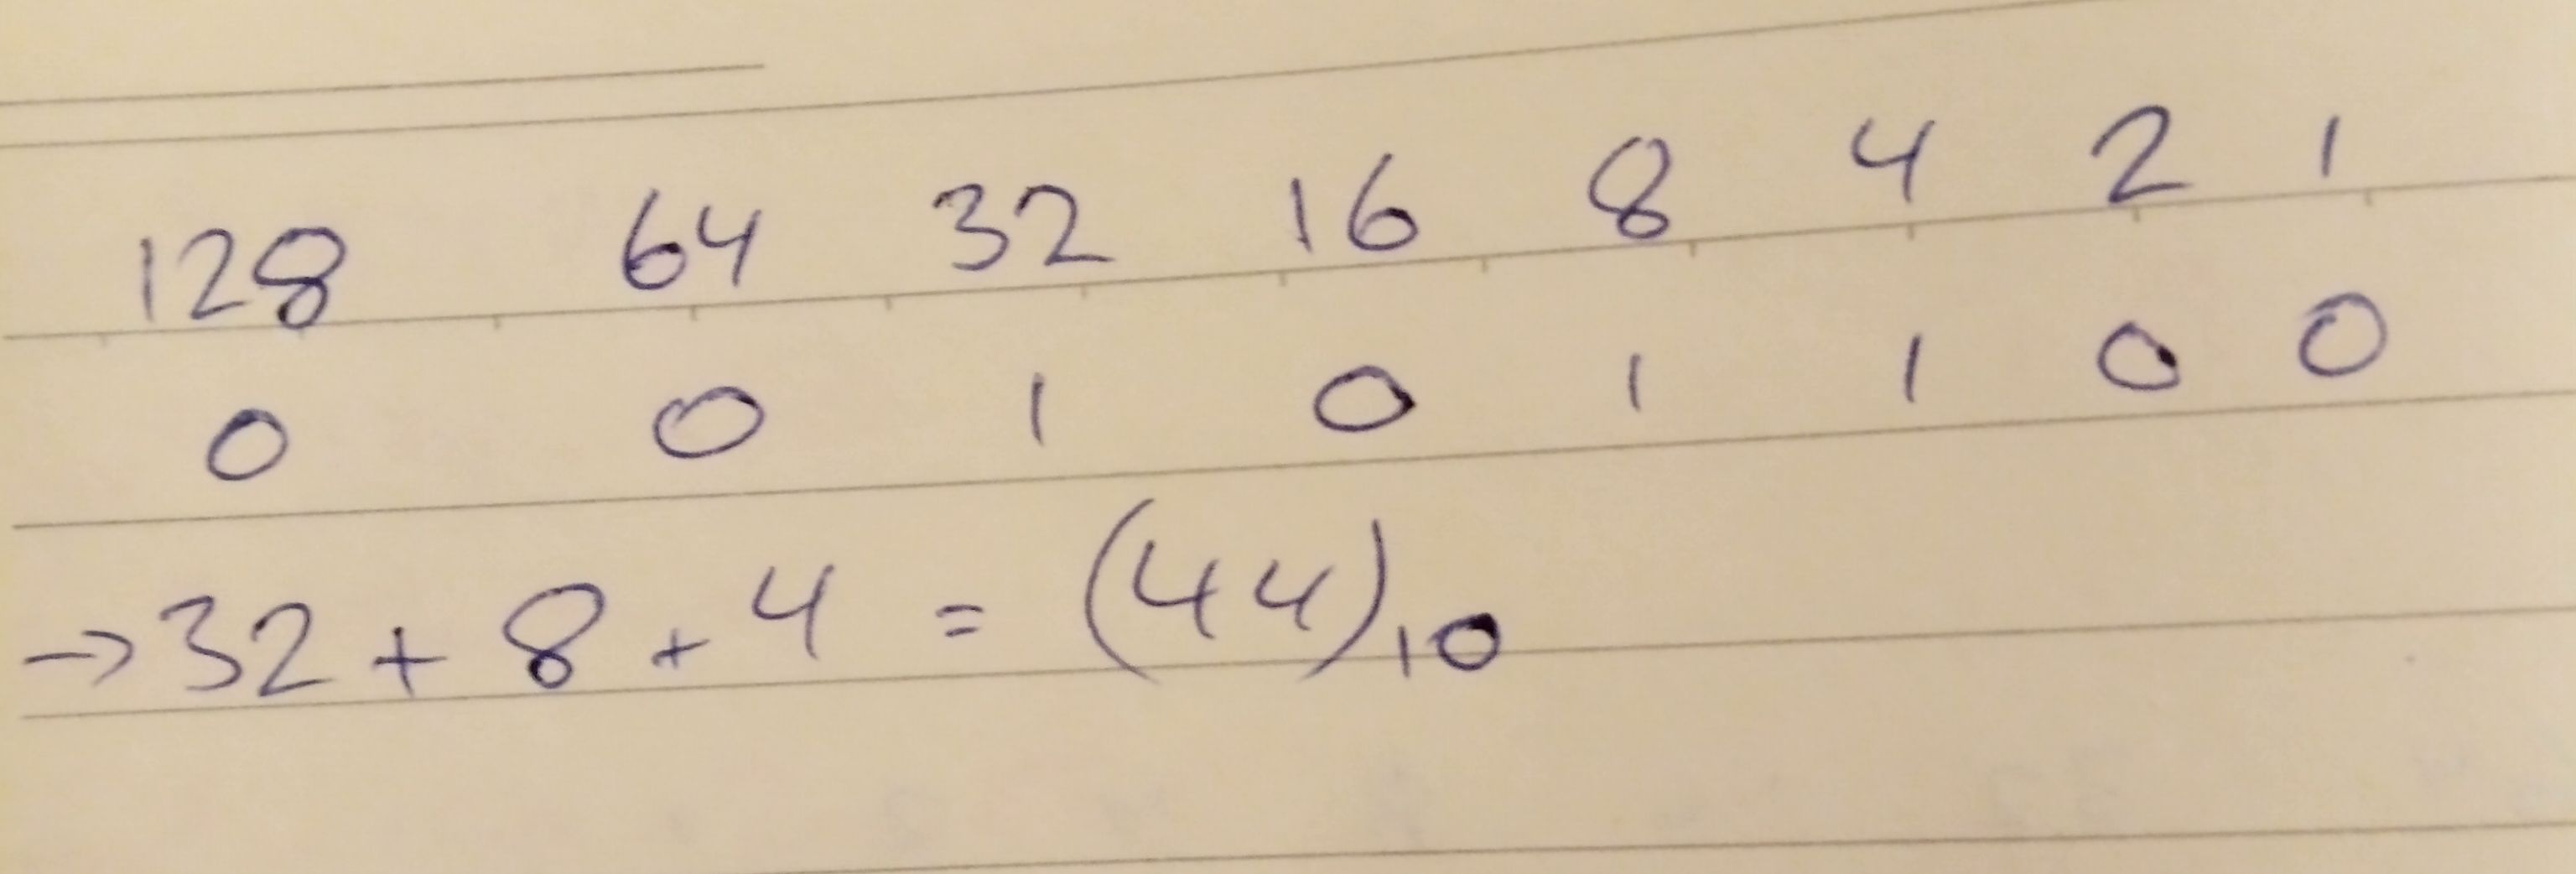 128 64 32 16 8 4 2 1
0 0 1 0 1 1 0 0
→ 32 + 8 + 4 = (44)₁₀